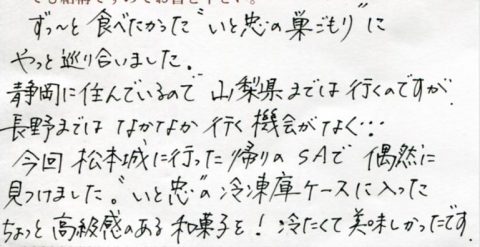 ずっ〜と食べたかった“いと忠の巣ごもり”に
やっと巡り合いました。
静岡に住んでいるので山梨県までは行くのですが
長野まではなかなか行く機会がなく…
今回松本城に行った帰りのSAで偶然に
見つけました。“いと忠”の冷凍庫ケースに入った
ちょっと高級感のある和菓子を！冷たくて美味しかったです.